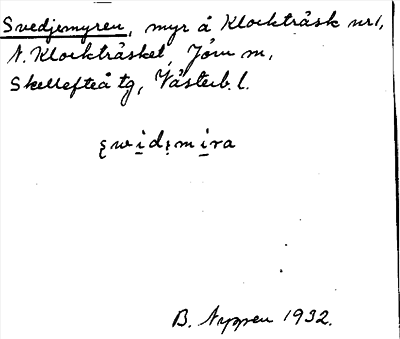 Svedjemyren, myr å Klockträsk nr 1,
N. Klockträsket, Jörn sn,
Skellefteå tg, Västerb. l.
B. Nyppen 1932.